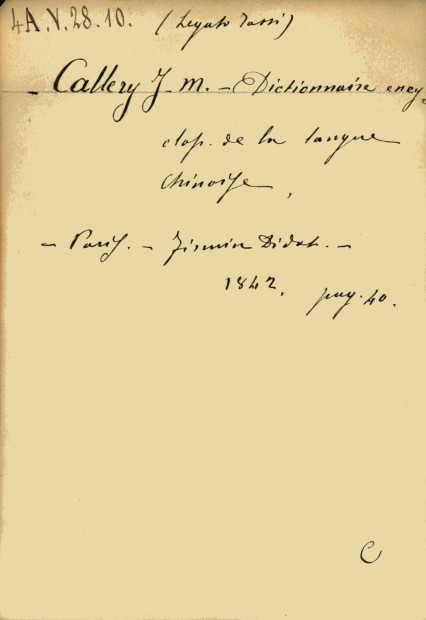 4A.V.28.10. (Legato Tassi)
- Callery J. M. - Dictionnaire ency-
clop. de la langue
Chinoise,
- Paris. - Firmin Didot. -
1842. pag. 40.
C